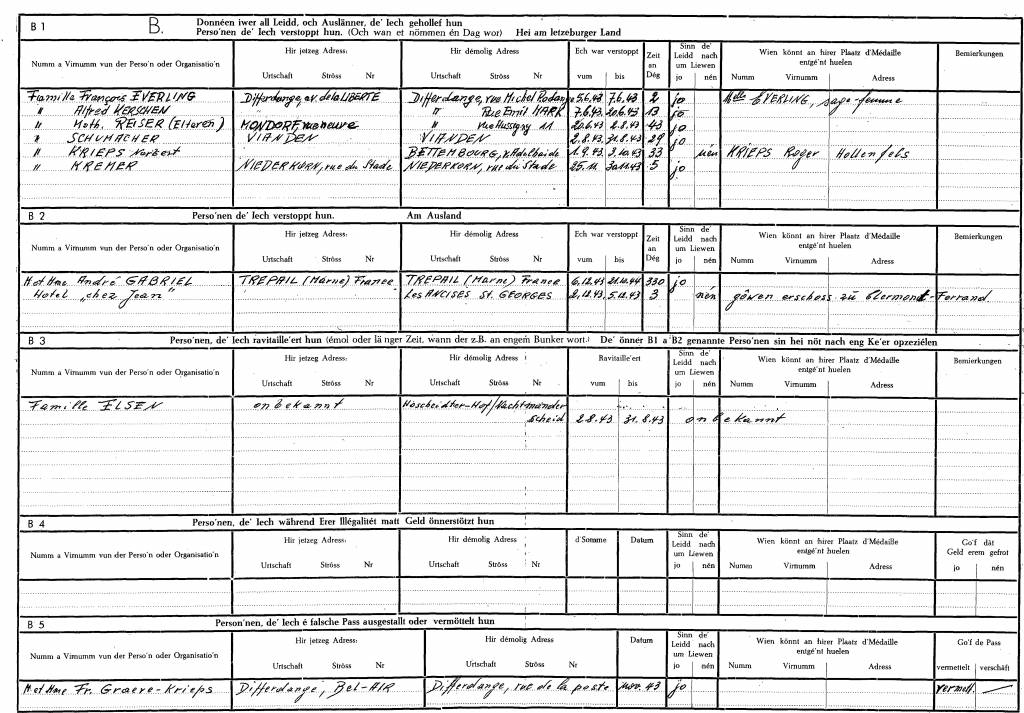 B 1 B. Donnéen iwer all Leidd, och Auslänner, de' Iech gehollef hun
Perso'nen de' Iech verstoppt hun. (Och wan et nömmen én Dag wor) Hei am letzeburger Land
Numm a Virnumm vun der Perso'n oder Organisatio'n Hir jetzeg Adress: Hir démolig Adress Ech war verstoppt Zeit an Dég Sinn de' Leidd nach um Liewen Wien könnt an hirer Plaatz d'Médaille entgé'nt huelen Bemierkungen
Urtschaft Ströss Nr Urtschaft Ströss Nr vum bis jo nén Numm Virnumm Adress
Famille François EVERLING Differdange, av. de la LIBERTE Differdange, rue Michel Rodange 5.6.43 7.6.43 2 jo Melle EVERLING, sage-femme
" Alfred KERSCHEN " Rue Emil MARK 7.6.43 20.6.43 13 jo
" Math. REISER (Elteren) MONDORF, rue neuve " rue Hussigny 11 20.6.43 2.8.43 43 jo
" SCHUMACHER VIANDEN VIANDEN 2.8.43 31.8.43 29 jo
" KRIEPS Norbert BETTEMBOURG, r. Adelhaide 1.9.43 3.10.43 33 nén KRIEPS Roger Hollenfels
" KREMER NIEDERKORN, rue du Stade NIEDERKORN, rue du Stade 25.11. 30.11.43 5 jo
B 2 Perso'nen de' Iech verstoppt hun. Am Ausland
Numm a Virnumm vun der Perso'n oder Organisatio'n Hir jetzeg Adress: Hir démolig Adress Ech war verstoppt Zeit an Dég Sinn de' Leidd nach um Liewen Wien könnt an hirer Plaatz d'Médaille entgé'nt huelen Bemierkungen
Urtschaft Ströss Nr Urtschaft Ströss Nr vum bis jo nén Numm Virnumm Adress
M et Mme André GABRIEL TREPAIL (Marne) France TREPAIL (Marne) France 6.12.43 44 330 jo
Hotel "chez Jean" Les ANCISES St. GEORGES 2.12.43 5.12.43 3 nén göwen erschoss zu Clermont-Ferrand.
B 3 Perso'nen, de' Iech ravitaille'ert hun (émol oder länger Zeit, wann der z.B. an engem Bunker wort.) De' önner B1 a B2 genannte Perso'nen sin hei nöt nach eng Ke'er opzezielen
Numm a Virnumm vun der Perso'n oder Organisatio'n Hir jetzeg Adress: Hir démolig Adress Ravitaille'ert Sinn de' Leidd nach um Liewen Wien könnt an hirer Plaatz d'Médaille entgé'nt huelen Bemierkungen
Urtschaft Ströss Nr Urtschaft Ströss Nr vum bis jo nén Numm Virnumm Adress
Famille ELSEN onbekannt Hoscheidter-Hof/Nachtmander
scheid 2.8.43 31.8.43 onbekannt
B 4 Perso'nen, de' Iech während Erer Illégalitét matt Geld önnerstötzt hun
Numm a Virnumm vun der Perso'n oder Organisatio'n Hir jetzeg Adress: Hir démolig Adress d'Somme Datum Sinn de' Leidd nach um Liewen Wien könnt an hirer Plaatz d'Médaille entgé'nt huelen Go'f dät Geld erem gefrot
Urtschaft Ströss Nr Urtschaft Ströss Nr jo nén Numm Virnumm Adress jo nén
B 5 Person'nen, de' Iech é falsche Pass ausgestallt oder vermöttelt hun
Numm a Virnumm vun der Perso'n oder Organisatio'n Hir jetzeg Adress: Hir démolig Adress Datum Sinn de' Leidd nach um Liewen Wien könnt an hirer Plaatz d'Médaille entgé'nt huelen Go'f de Pass
Urtschaft Ströss Nr Urtschaft Ströss Nr jo nén Numm Virnumm Adress vermettelt verschäft
M et Mme Fr. Graeve-Krieps Differdange, Bel-AIR Differdange, rue de la poste nov. 43 jo vermett. —